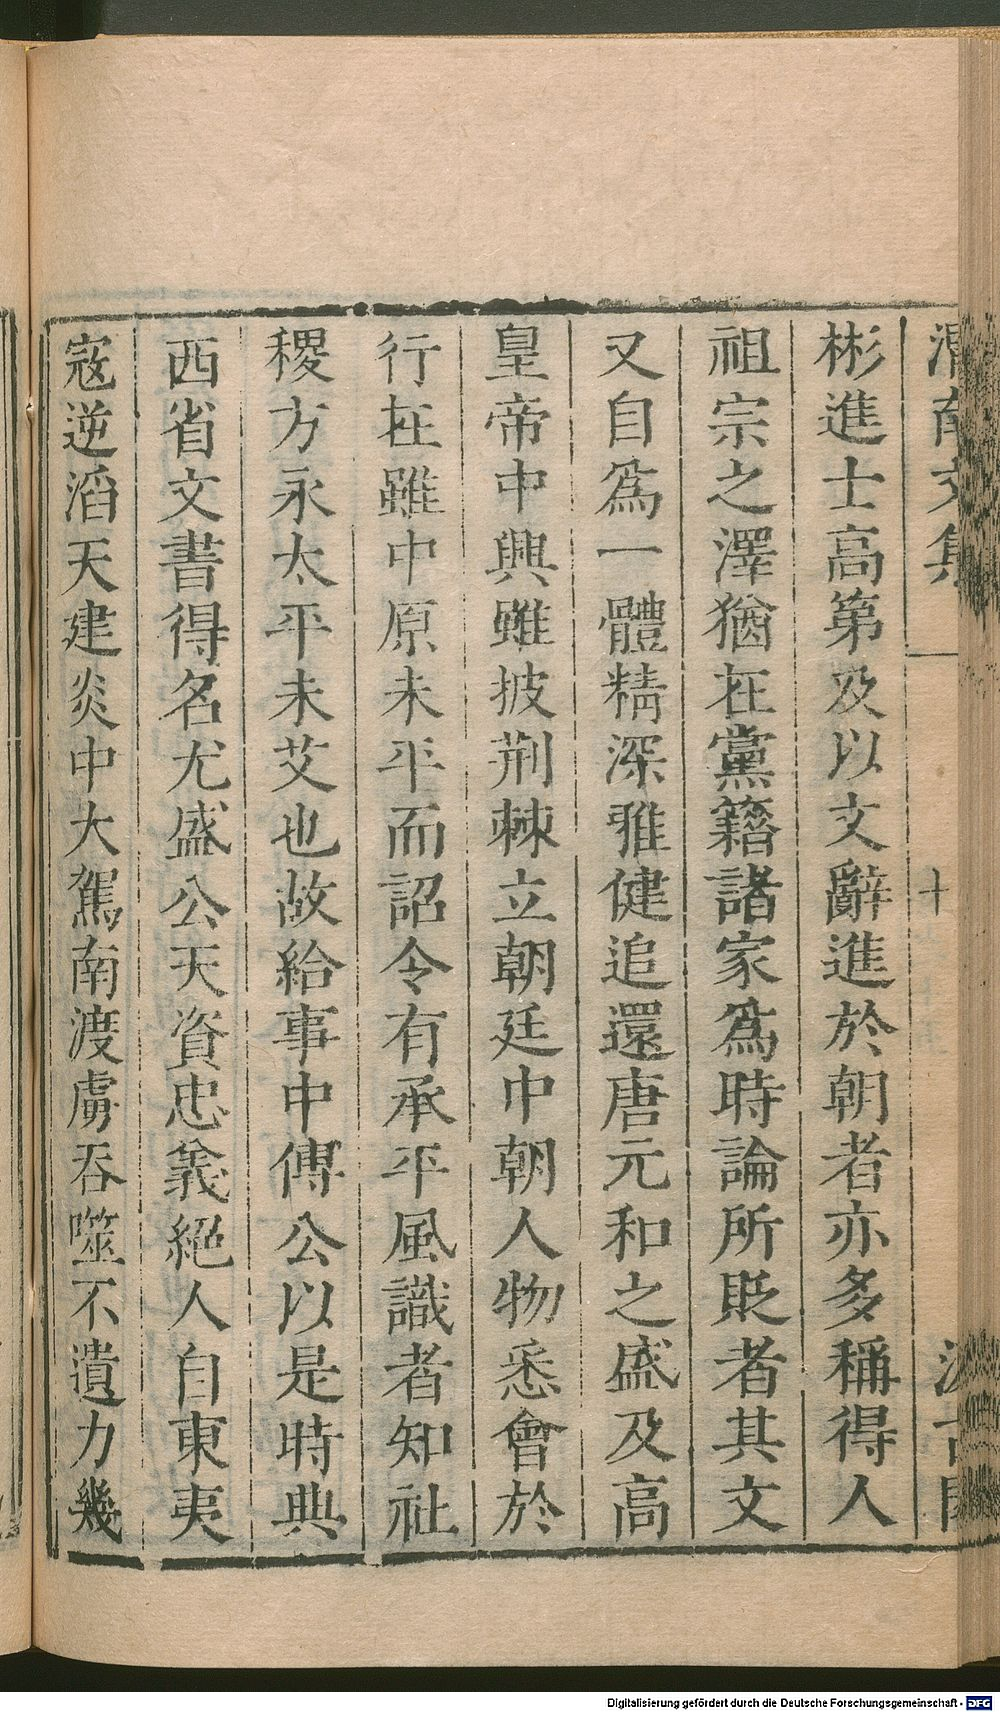 南文集
十
彬進士高第及以文辭進於朝者亦多稱得人
祖宗之澤猶在黨籍諸家爲時論所貶者其文
又自爲一體精深雅健追還唐元和之盛及高
皇帝中興雖披荆棘立朝廷中朝人物悉會於
行在雖中原未平而詔令有承平風識者知社
稷方永太平未艾也故給事中傅公以是時典
西省文書得名尤盛公天資忠義絕人自東夷
寇逆滔天建炎中大駕南渡虜吞噬不遺力幾
Digitalisierung gefördert durch die Deutsche Forschungsgemeinschaft - DFG